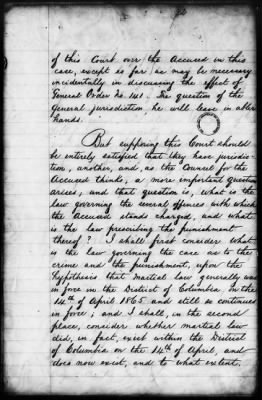 of this Court over the Accused in this
case, except so far as may be necessary
incidentally in discussing the effect of
General Order No. 141. The question of the
General jurisdiction he will leave in other
hands.
But supposing this Court should
be entirely satisfied that they have jurisdic-
tion, another, and, as the Counsel for the
Accused thinks, a more important question
arises; and that question is, what is the
law governing the several offences with which
the Accused stands charged, and what
is the law prescribing the punishment
thereof? I shall first consider what
is the law governing the case as to the
crime and the punishment, upon the
hypothesis that martial law generally was
in force in the District of Columbia on the
14th of April 1865 and still so continues
in force; and I shall, in the second
place, consider whether martial law
did, in fact, exist within the District
of Columbia on the 14th of April, and
does now exist, and to what extent.